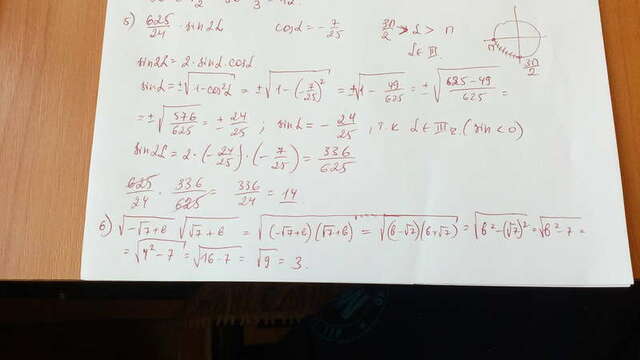 5) 625/24 · sin2α cosα = -7/25 3π/2 > α > π
α ∈ III.
π
3π/2
sin2α = 2·sinα·cosα
sinα = ±√(1-cos²α) = ±√(1-(-7/25)²) = ±√(1-49/625) = ±√((625-49)/625) =
= ±√(576/625) = ±24/25 ; sinα = -24/25, т.к α ∈ III ч. (sin < 0)
sin2α = 2·(-24/25)·(-7/25) = 336/625
625/24 · 336/625 = 336/24 = 14
6) √(-√7+b) √(√7+b) = √((-√7+b)(√7+b)) = √((b-√7)(b+√7)) = √(b²-(√7)²) = √(b²-7) =
= √(4²-7) = √(16-7) = √9 = 3.